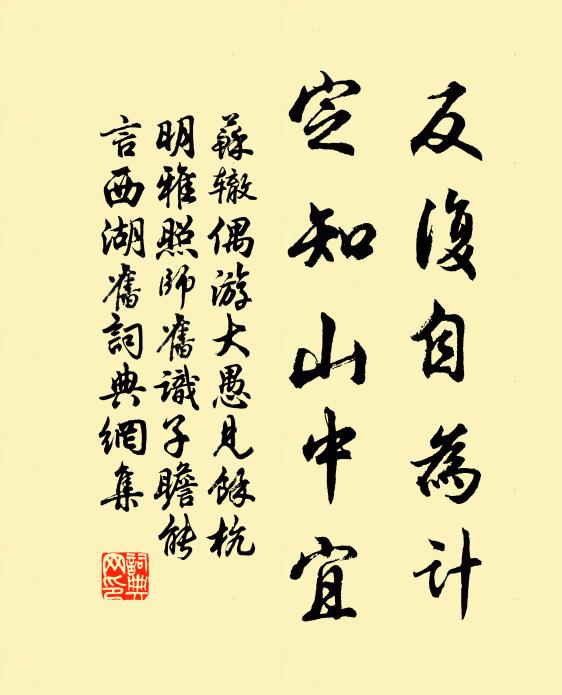 反復自為計
定知山中宜
蘇辙偶游大愚見餘杭
明雅照師舊識子瞻能
言西湖舊詞典網集
詞典網印